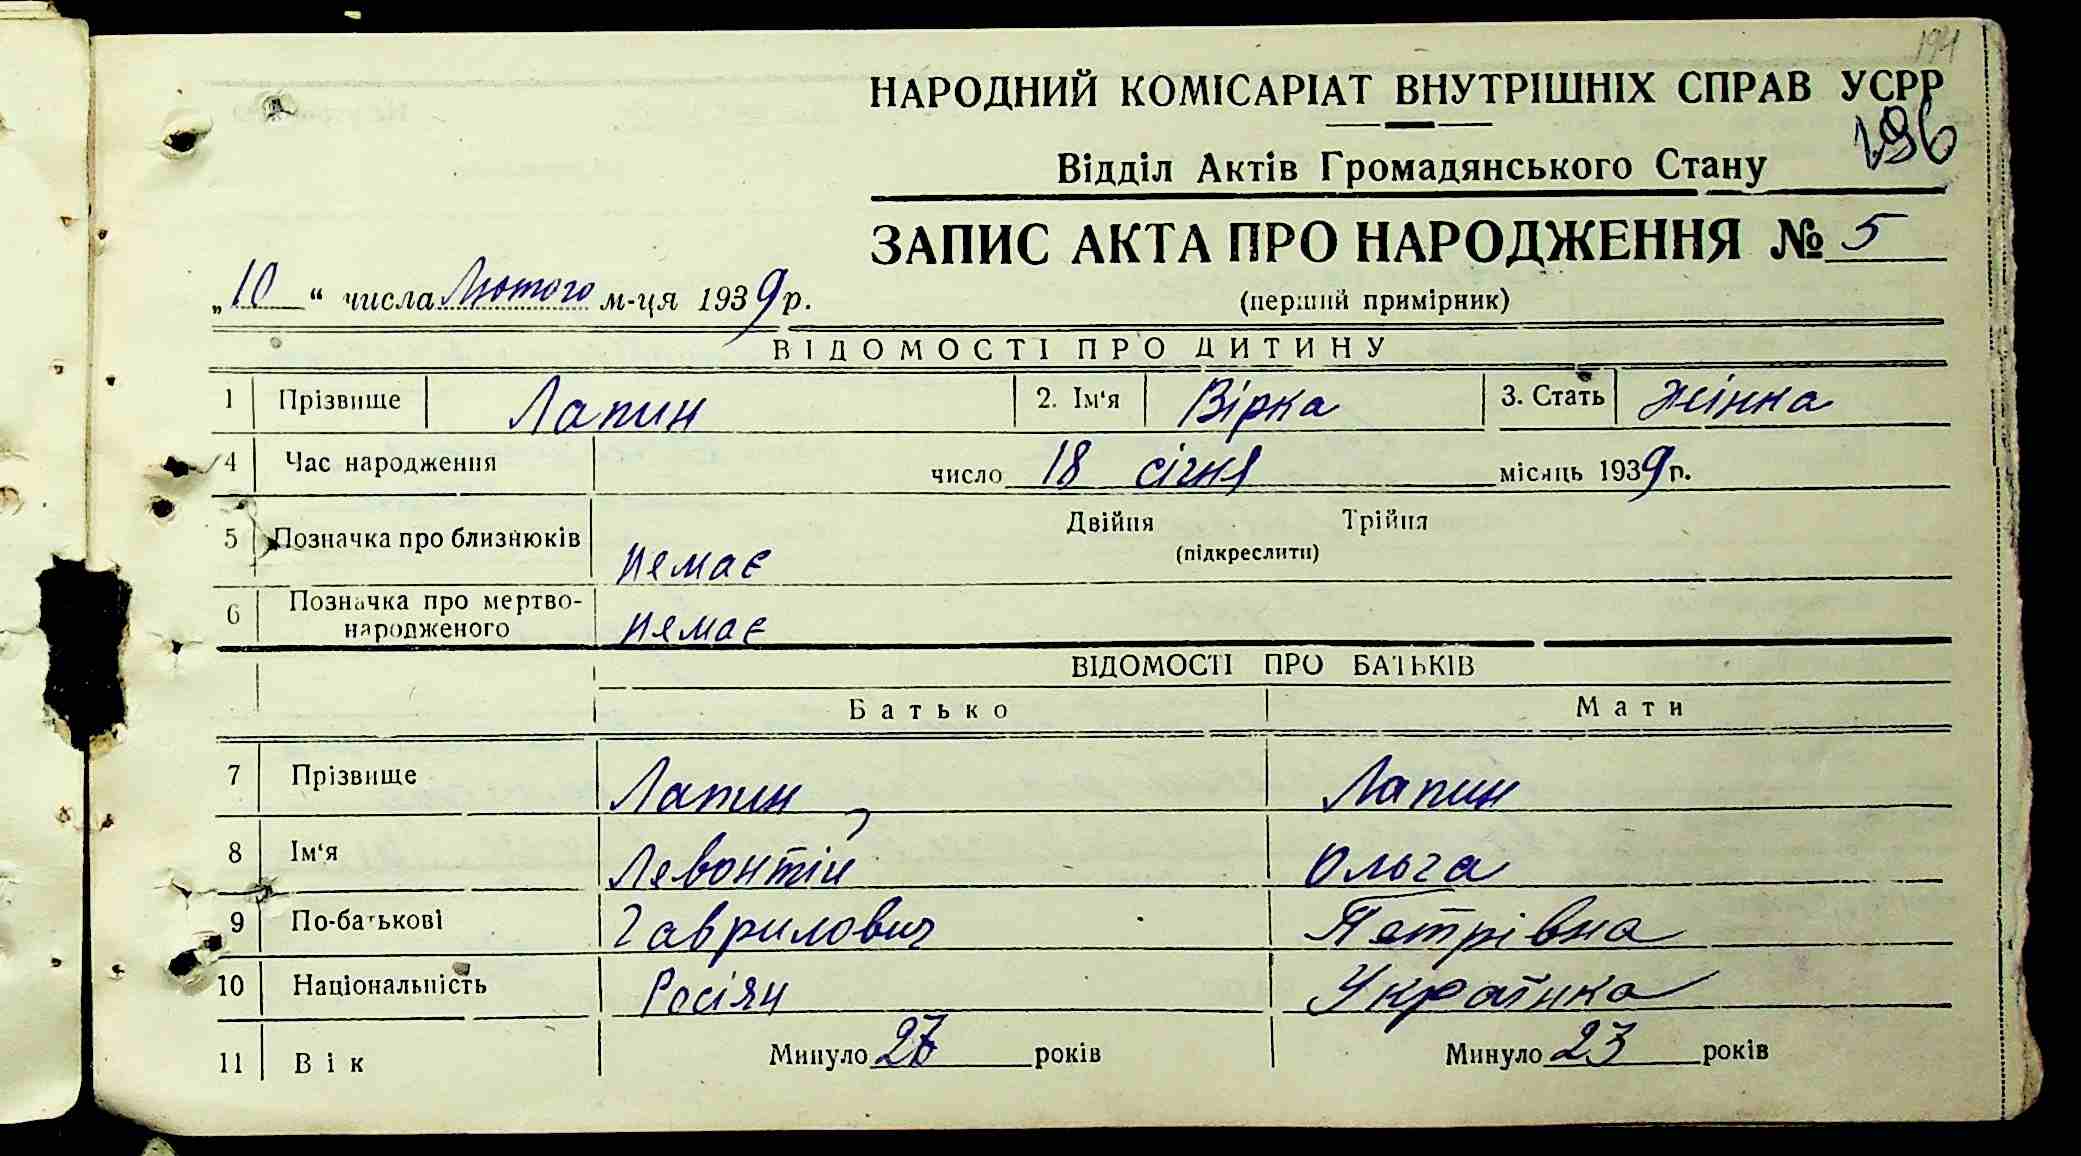 194
НАРОДНИЙ КОМІСАРІАТ ВНУТРІШНІХ СПРАВ УСРР
196
Відділ Актів Громадянського Стану
ЗАПИС АКТА ПРО НАРОДЖЕННЯ № 5
„10“ числа Лютого м-ця 1939 р.
(перший примірник)
ВІДОМОСТІ ПРО ДИТИНУ
1 Прізвище Лапин 2. Ім‘я Вірка 3. Стать Жінка
4 Час народження число 18 січня місяць 1939 р.
5 Позначка про близнюків немає Двійня Трійня
(підкреслити)
6 Позначка про мертво-
народженого немає
ВІДОМОСТІ ПРО БАТЬКІВ
Батько Мати
7 Прізвище Лапин Лапин
8 Ім‘я Левонтій Ольга
9 По-батькові Гаврилович Петрівна
10 Національність Росіян Українка
11 Вік Минуло років Минуло 23 років